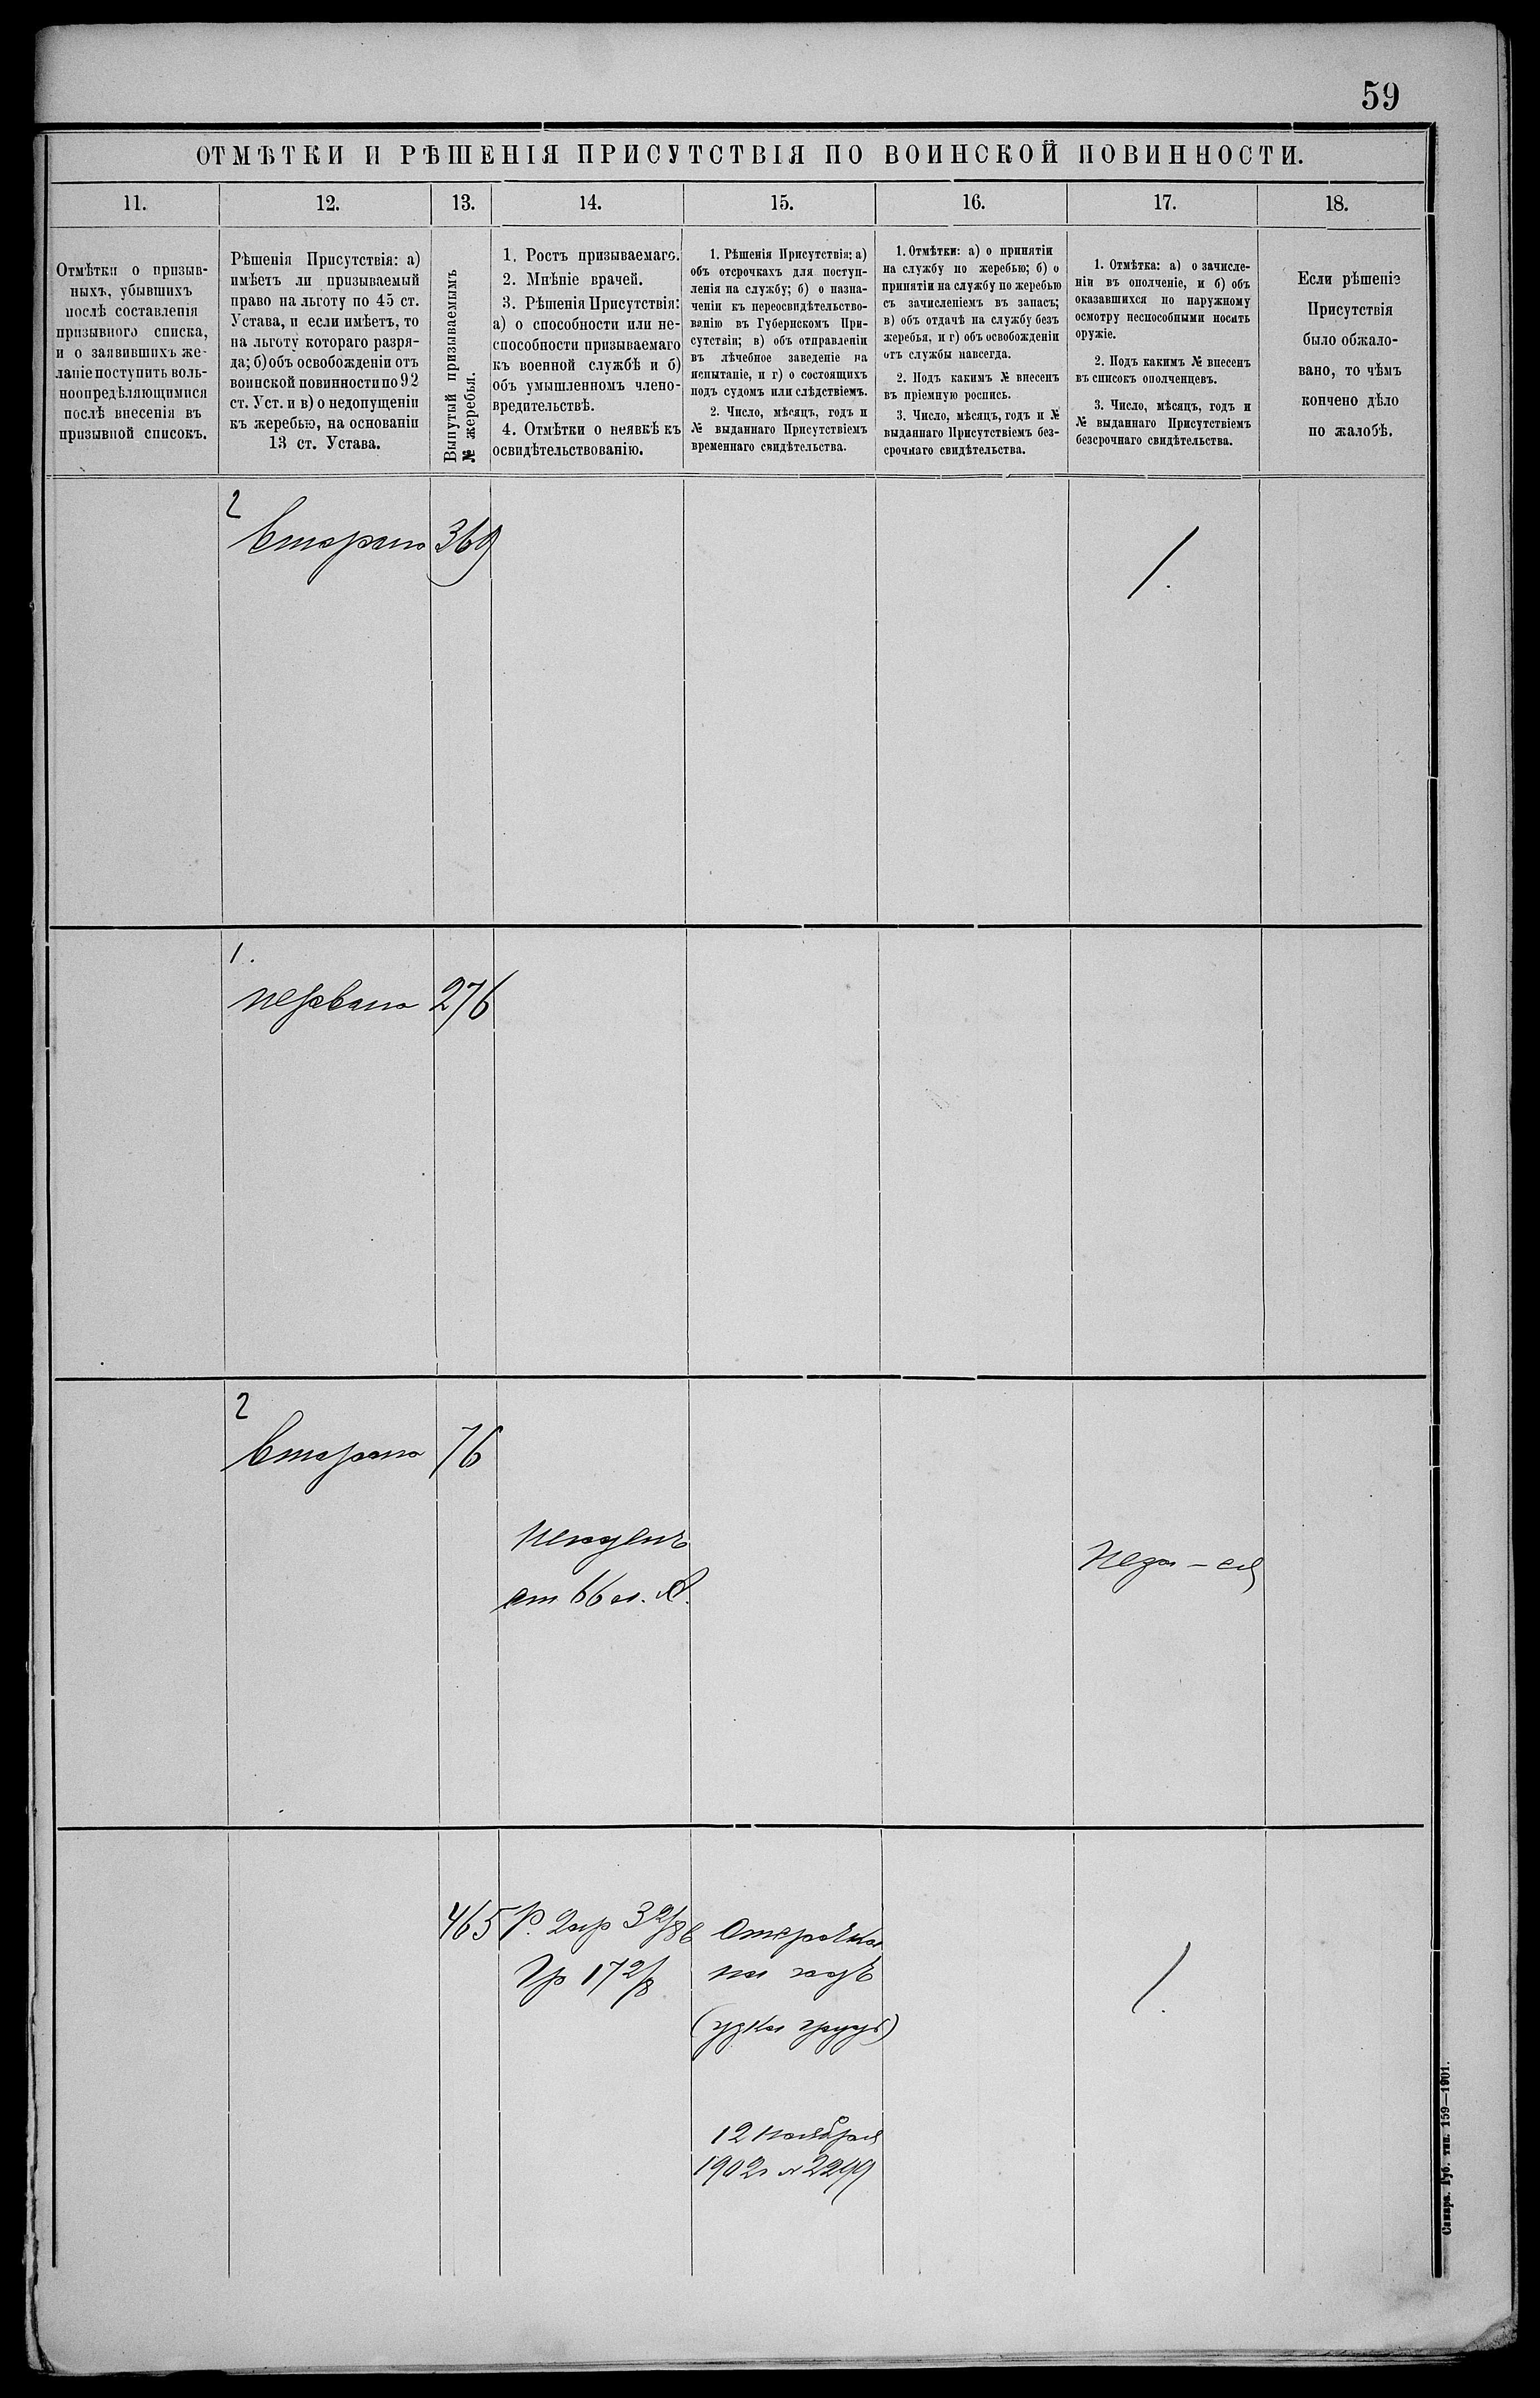 59
ОТМѢТКИ И РѢШЕНІЯ ПРИСУТСТВІЯ ПО ВОИНСКОЙ ПОВИННОСТИ.
11.
12.
13.
14.
15.
16.
17.
18.
Отмѣтки о призыв-
ныхъ, убывшихъ
послѣ составленія
призывного списка,
и о заявившихъ же-
ланіе поступить воль-
ноопредѣляющимися
послѣ внесенія въ
призывной списокъ.
Рѣшенія Присутствія: а)
имѣетъ ли призываемый
право на льготу по 45 ст.
Устава, и если имѣетъ, то
на льготу котораго разря-
да; б) объ освобожденіи отъ
воинской повинности по 92
ст. Уст. и в) о недопущеніи
къ жеребью, на основаніи
13 ст. Устава.
Вынутый призываемымъ
№ жеребья.
1. Ростъ призываемаго.
2. Мнѣніе врачей.
3. Рѣшенія Присутствія:
а) о способности или не-
способности призываемаго
къ военной службѣ и б)
объ умышленномъ члено-
вредительствѣ.
4. Отмѣтки о неявкѣ къ
освидѣтельствованію.
1. Рѣшенія Присутствія: а)
объ отсрочкахъ для поступ-
ленія на службу; б) о назна-
ченіи къ переосвидѣтельство-
ванію въ Губернскомъ При-
сутствіи; в) объ отправленіи
въ лѣчебное заведеніе на
испытаніе, и г) о состоящихъ
подъ судомъ или слѣдствіемъ.
2. Число, мѣсяцъ, годъ и
№ выданнаго Присутствіемъ
временнаго свидѣтельства.
1. Отмѣтки: а) о принятіи
на службу по жеребью; б) о
принятіи на службу по жеребью
съ зачисленіемъ въ запасъ;
в) объ отдачѣ на службу безъ
жеребья, и г) объ освобожденіи
отъ службы навсегда.
2. Подъ какимъ № внесенъ
въ пріемную роспись.
3. Число, мѣсяцъ, годъ и №
выданнаго Присутствіемъ без-
срочнаго свидѣтельства.
1. Отмѣтка: а) о зачисле-
ніи въ ополченіе, и б) объ
оказавшихся по наружному
осмотру неспособными носить
оружіе.
2. Подъ какимъ № внесенъ
въ списокъ ополченцевъ.
3. Число, мѣсяцъ, годъ и
№ выданнаго Присутствіемъ
безсрочнаго свидѣтельства.
Если рѣшеніе
Присутствія
было обжало-
вано, то чѣмъ
кончено дѣло
по жалобѣ.
2
Втораго 369
1.
перваго 276
2
Втораго 76
Негоденъ
ст 66 л. А.
465 Р. 2 ар 3 2/8 в
Гр 17 2/8
Отсрочка
на годъ
(узка грудь)
12 ноября
1902 г № 2299
Самара. Губ. тип. 159—1901.